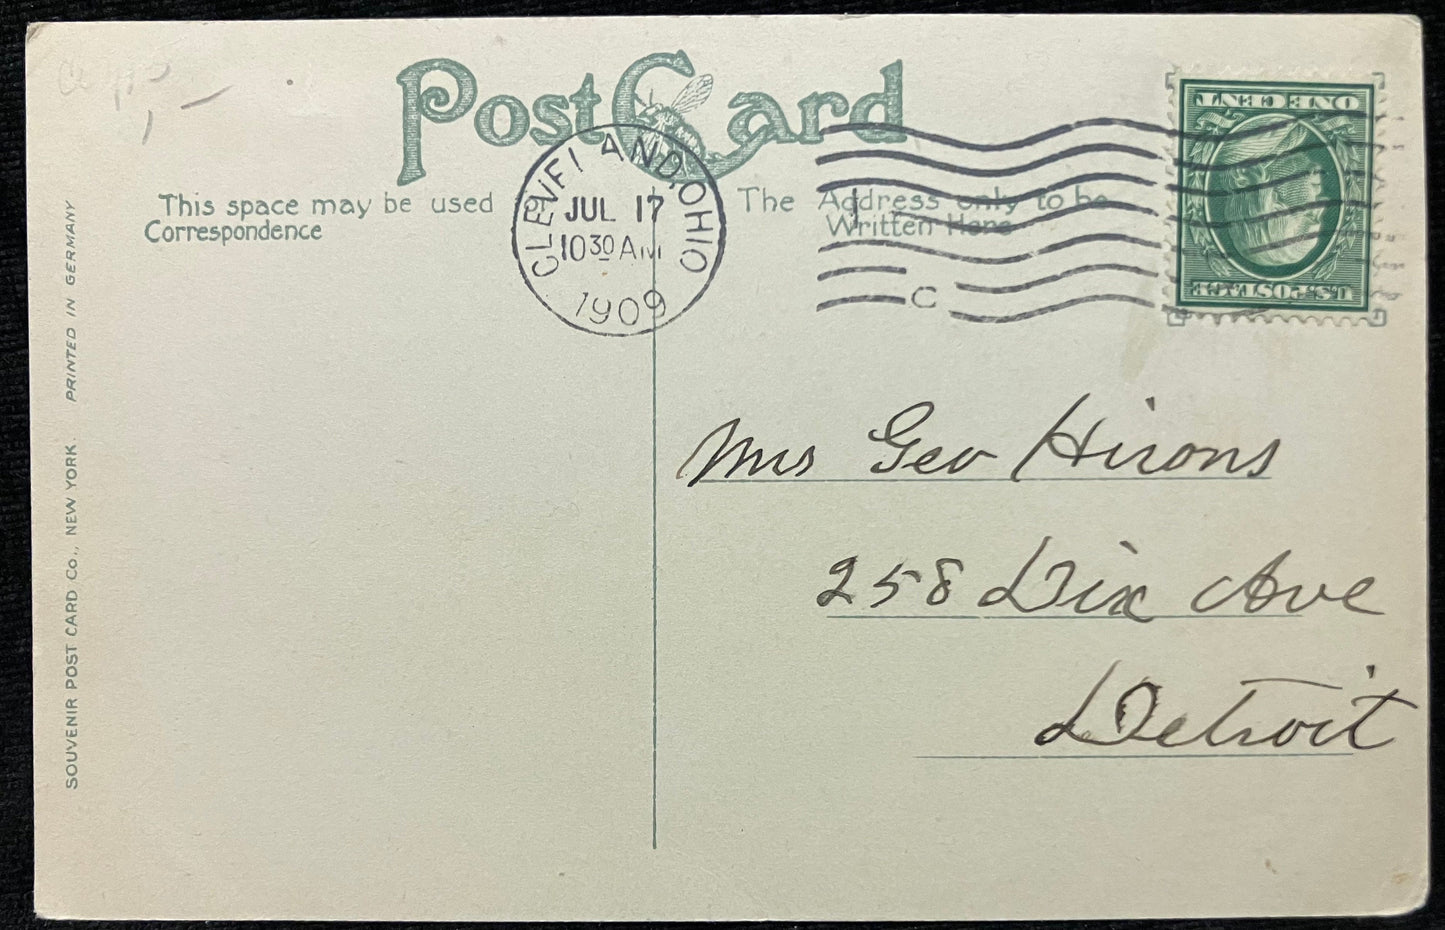 Post Card
This space may be used
Correspondence
The Address only to be
Written Here
CLEVELAND, OHIO
JUL 17
10 30 AM
1909
C
ONE CENT
U.S. POSTAGE
Mrs Geo Hirons
258 Dix Ave
Detroit
SOUVENIR POST CARD CO., NEW YORK. PRINTED IN GERMANY